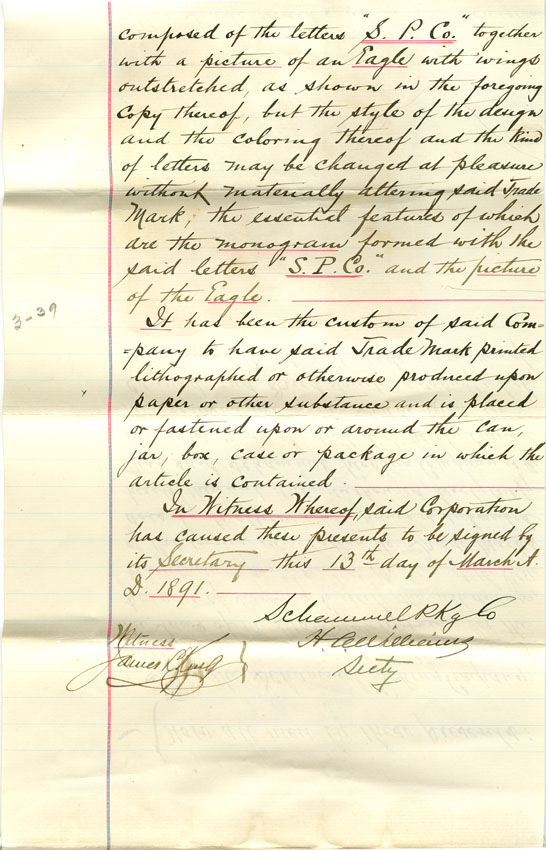 composed of the letters "S. P. Co." together
with a picture of an Eagle with wings
outstretched, as shown in the foregoing
copy thereof, but the style of the design
and the coloring thereof and the kind
of letters may be changed at pleasure
without materially altering said Trade
Mark, the essential features of which
are the monogram formed with the
said letters "S. P. Co." and the picture
of the Eagle.
3-39
It has been the custom of said Com=
=pany to have said Trade Mark printed
lithographed or otherwise produced upon
paper or other substance and is placed
or fastened upon or around the can,
jar, box, case or package in which the
article is contained.
In Witness Whereof, said Corporation
has caused these presents to be signed by
its Secretary this 13th day of March A.
D. 1891.
Schammel Pkg Co
H. A. Williams
Secty
Witness
James